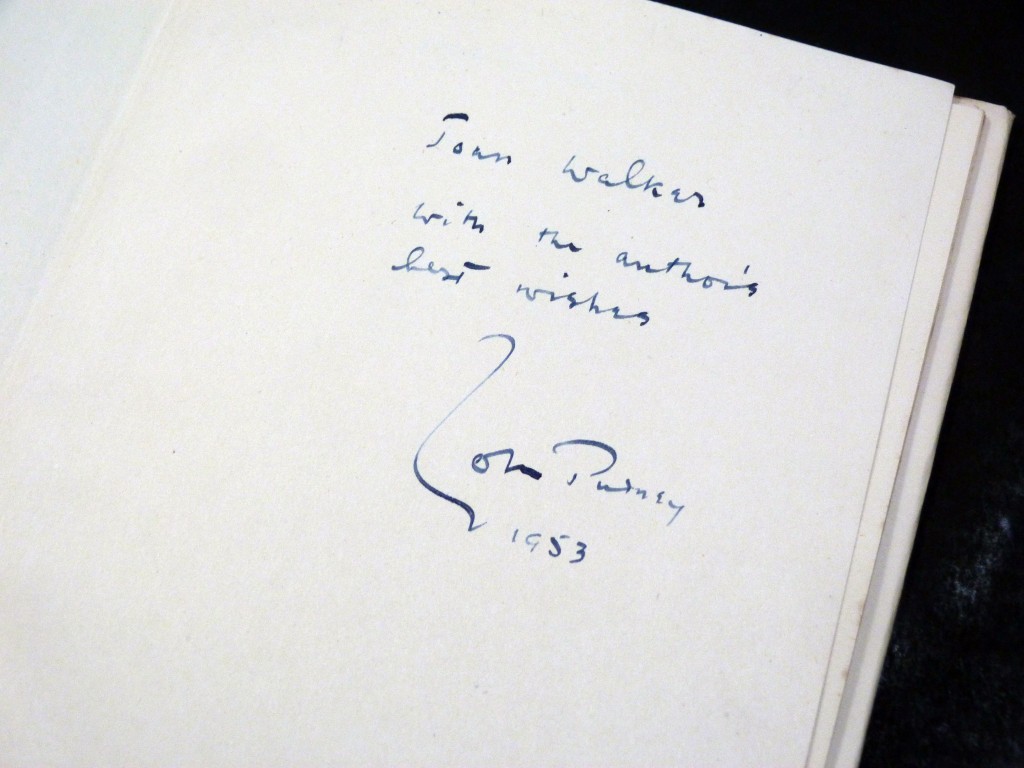 Joan Walker
with the author's
best wishes
John Pudney
1953